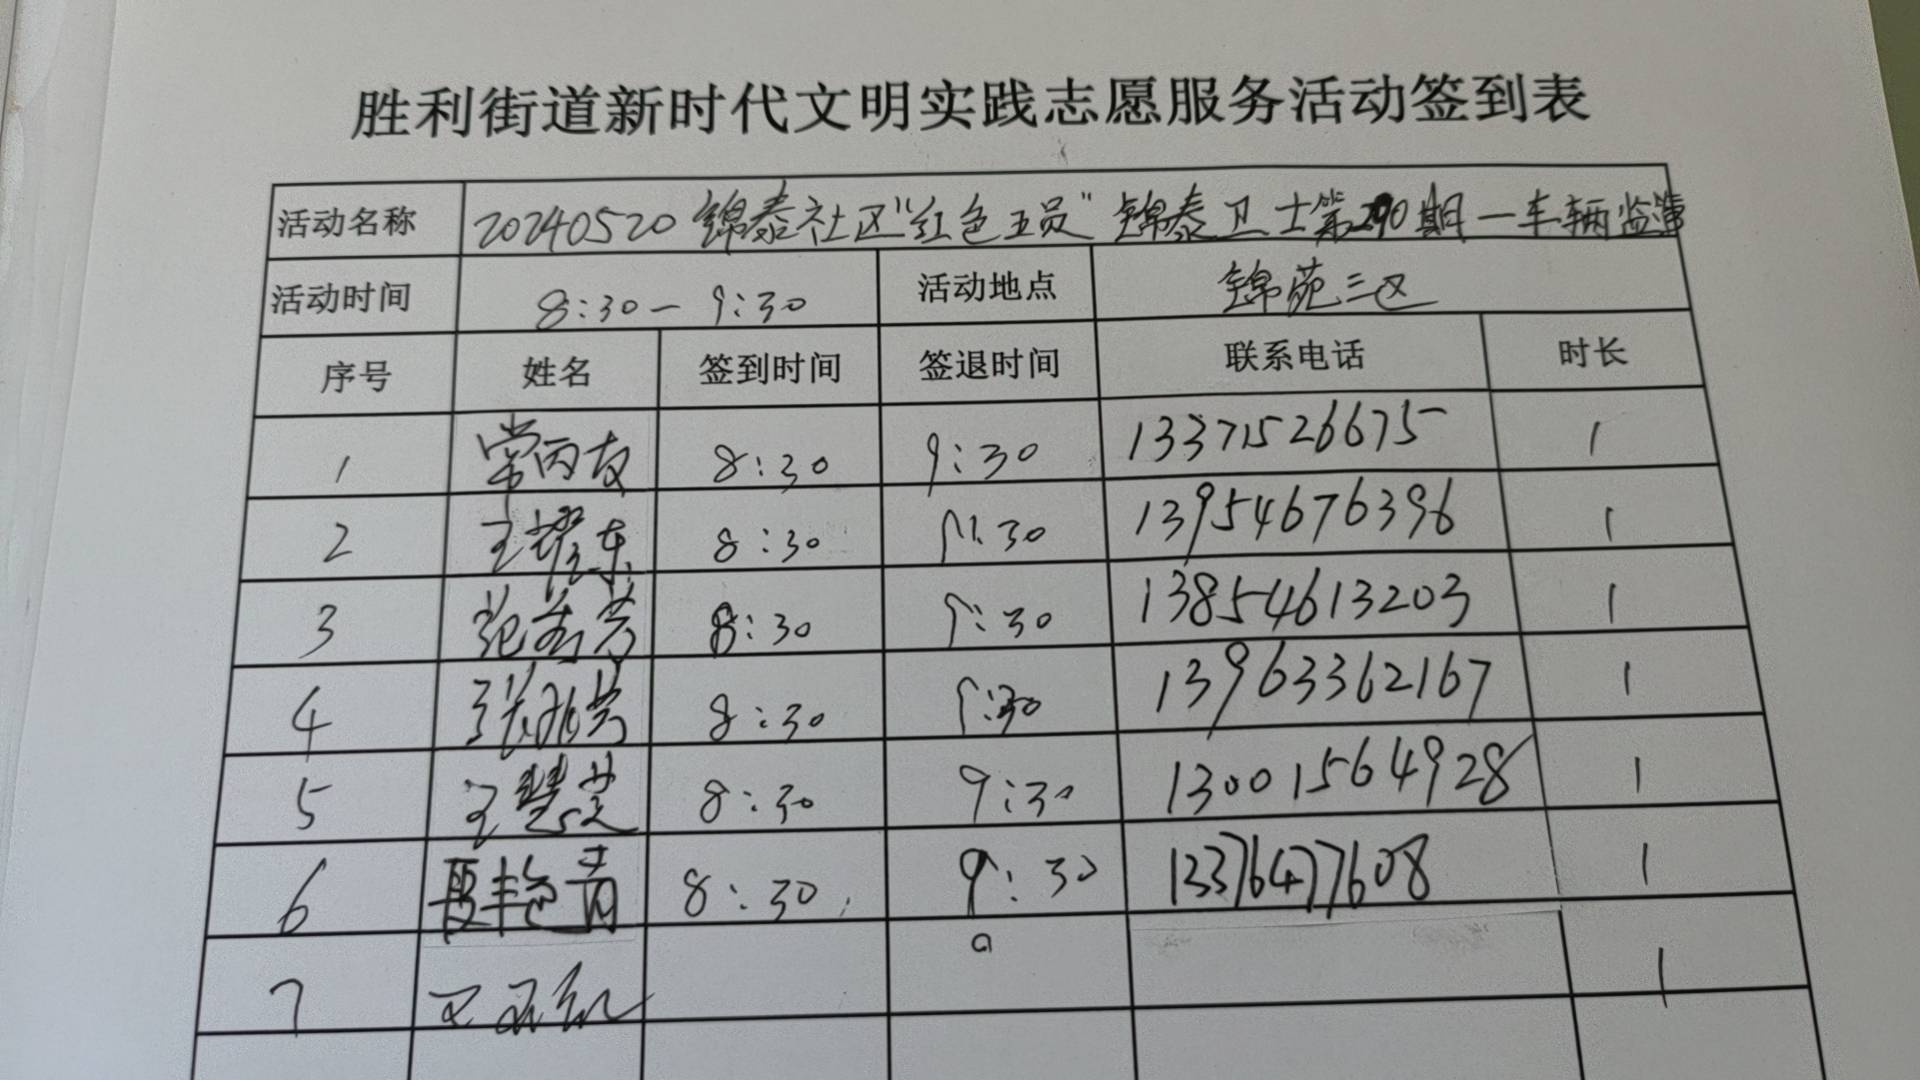 胜利街道新时代文明实践志愿服务活动签到表
活动名称 20240520 锦泰社区"红色五员"锦泰卫士第290期一车辆监
活动时间 8:30一9:30 活动地点 锦苑三区
序号 姓名 签到时间 签退时间 联系电话 时长
1 常丙友 8:30 9:30 13371526675 1
2 王耀东 8:30 9:30 13954676396 1
3 芳 8:30 9:30 13854613203 1
4 张兆芳 8:30 9:30 13963362167 1
5 王慧芝 8:30 9:30 13001564928 1
6 夏艳青 8:30 9:30 13376477608 1
7 王 红 1